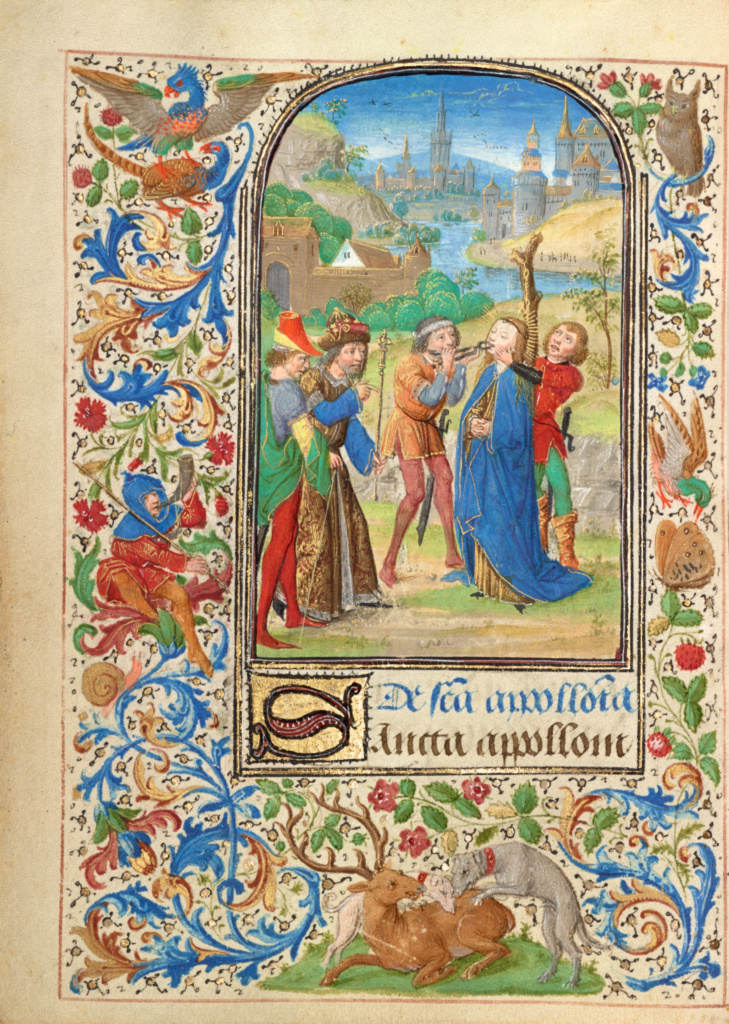 De sc̄a appollōia
Sancta appolloni